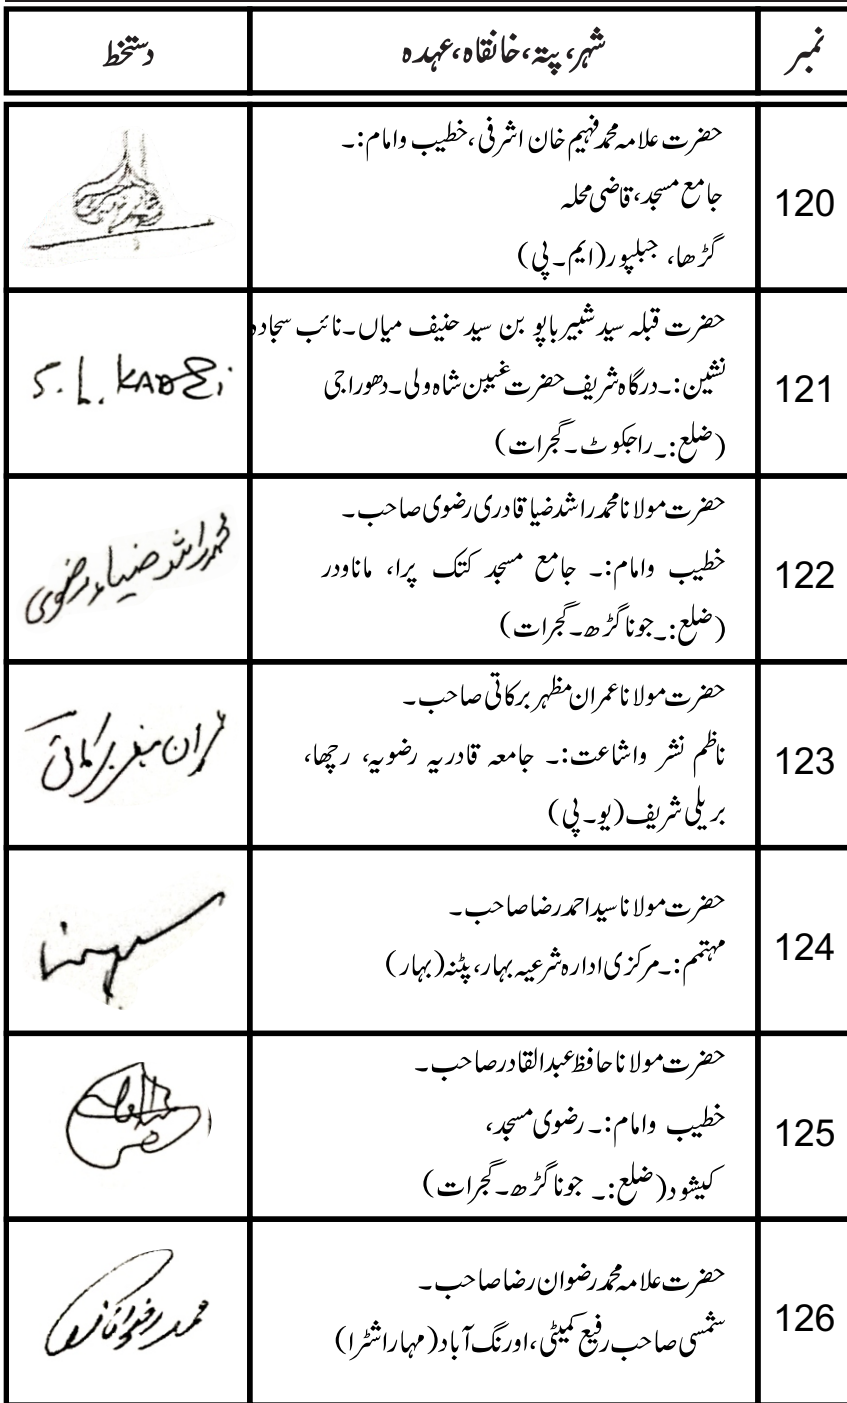 نمبر شہر، پتہ، خانقاہ، عہدہ دستخط
120
حضرت علامہ محمد فہیم خان اشرفی، خطیب وامام:۔
جامع مسجد، قاضی محلہ
گڑھا، جبلپور (ایم۔پی)
121
حضرت قبلہ سید شبیر باپو بن سید حنیف میاں۔ نائب سجادہ
نشین:۔ درگاہ شریف حضرت غیبن شاہ ولی۔ دھوراجی
(ضلع:۔ راجکوٹ۔ گجرات)
S. L. KADRI
122
حضرت مولانا محمد راشد ضیا قادری رضوی صاحب۔
خطیب وامام:۔ جامع مسجد کتک پرا، ماناودر
(ضلع:۔ جوناگڑھ۔ گجرات)
محمد راشد ضیاء رضوی
123
حضرت مولانا عمران مظہر برکاتی صاحب۔
ناظم نشر واشاعت:۔ جامعہ قادریہ رضویہ، رچھا،
بریلی شریف (یو۔پی)
عمران مظہر برکاتی
124
حضرت مولانا سید احمد رضا صاحب۔
مہتمم:۔ مرکزی ادارہ شرعیہ بہار، پٹنہ (بہار)
125
حضرت مولانا حافظ عبدالقادر صاحب۔
خطیب وامام:۔ رضوی مسجد،
کیشود (ضلع:۔ جوناگڑھ۔ گجرات)
126
حضرت علامہ محمد رضوان رضا صاحب۔
شمسی صاحب رفیع کمیٹی، اورنگ آباد (مہاراشٹرا)
محمد رضوان